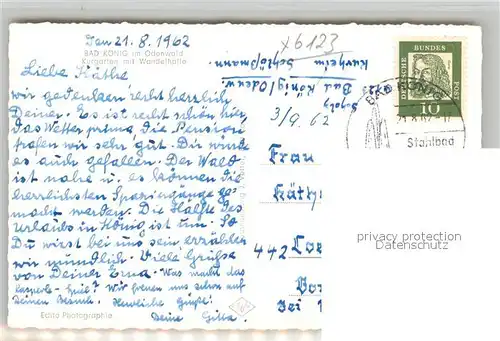 Den 21. 8. 1962
BAD KÖNIG im Odenwald
Kurgarten mit Wandelhalle
Liebe Käthe
wir gedenken recht herzlich
Deiner. Es ist recht schön hier,
das Wetter prima, die Pension
trafen wir sehr gut. Dir würde
es auch gefallen. Der Wald
ist nahe u. es können die
herrlichsten Spaziergänge ge-
macht werden. Die Hälfte des
Urlaubs in König ist um. So
Du wirst bei uns sein, erzählen
wir mündlich. Viele Grüße
von Deiner Erna. Was macht das
Kasperle-Spiel? Wir freuen uns schon auf
Deinen Besuch. Herzliche Grüße!
Deine Gitta.
Edita Photographie
x6123
Bad König/Odenw.
Kurheim Schloßmann
3/9. 62
DEUTSCHE BUNDESPOST
10
BAD KÖNIG
21.8.62-17
Stahlbad
Frau
Käth
442
Bei
privacy protection
Datenschutz